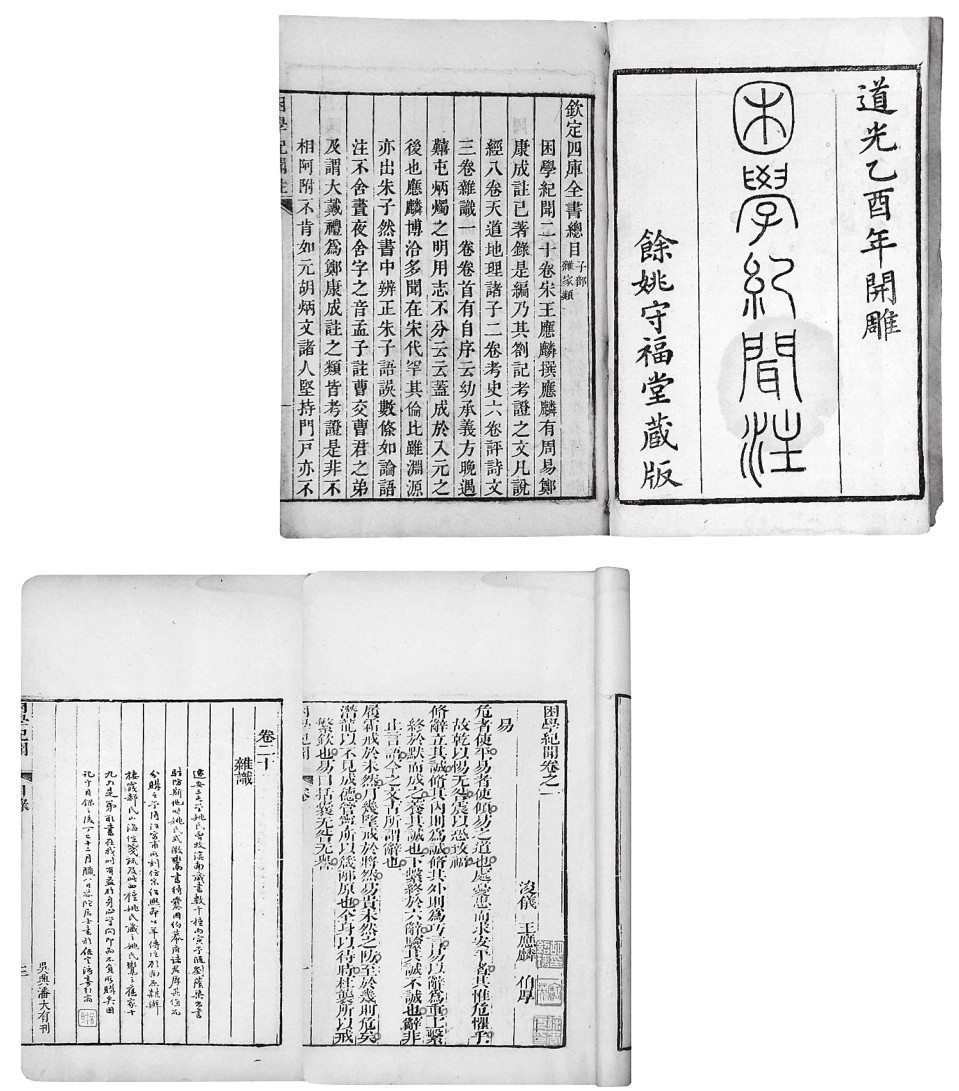 道光乙酉年開雕
困學紀聞注
餘姚守福堂藏版
欽定四庫全書總目子部雜家類
困學紀聞二十卷宋王應麟撰應麟有周易鄭
康成註已著錄是編乃其劄記考證之文凡說
經八卷天道地理諸子二卷考史六卷評詩文
三卷雜識一卷卷首有自序云幼承義方晚遇
囏屯炳燭之明用志不分云云蓋成於入元之
後也應麟博洽多聞在宋代罕其倫比雖淵源
亦出朱子然書中辨正朱子語誤數條如論語
注不舍晝夜舍字之音孟子註曹交曹君之弟
及謂大戴禮爲鄭康成註之類皆考證是非不
相阿附不肯如元胡炳文諸人堅持門戶亦不
困學紀聞注
一
困學紀聞卷之一
浚儀 王應麟 伯厚
易
危者使平易者使傾易之道也處憂患而求安平者其惟危懼乎
故乾以惕无咎震以恐致福
脩辭立其誠脩其內則爲誠脩其外則爲巧言易以辭爲重上繫
終於默而成之養其誠也下繫終於六辭驗其誠不誠也辭非
止言語今之文古所謂辭也
履霜戒於未然月幾望戒於將然易貴未然之防至於幾則危矣
潛龍以不見成德管寧所以箴邴原也全身以待時杜襲所以戒
繁欽也易曰括囊无咎无譽
困學紀聞
卷一
一
卷二十
雜識
吳興潘大有刊
困學紀聞
目錄
三